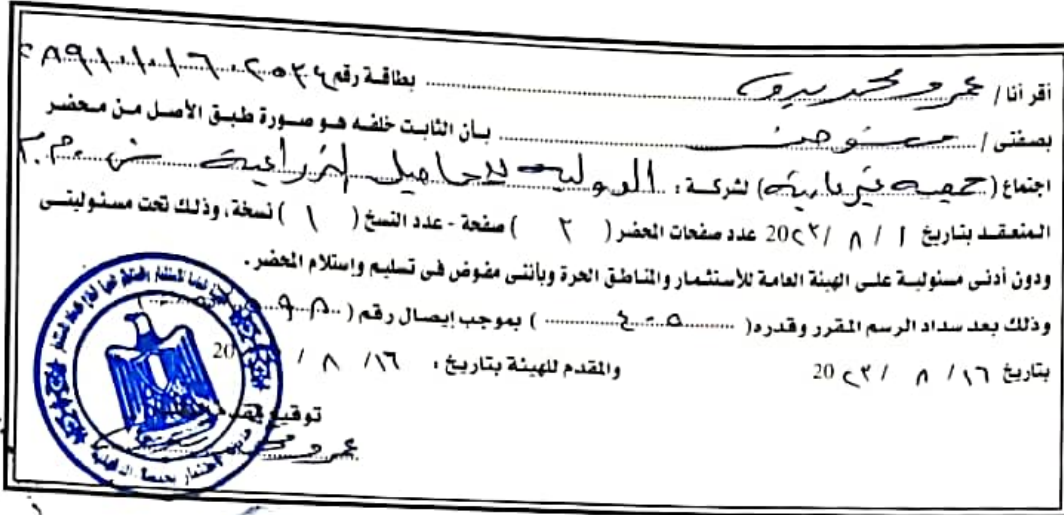 أقر أنا / عمرو محمد ........ بطاقة رقم
بصفتى / مفوض ........ بـان الثابت خلفه هـو صـورة طبـق الأصـل مـن مـحضـر
اجتماع ( جمعية غير عادية ) لشركـة : الدولية للمحاصيل الزراعية ش.م.م
المنعقـد بتاريخ ١ / ٨ / ٢٣ 20 عدد صفحات المحضر ( ٢ ) صفحة - عدد النسخ ( ١ ) نسخة ، وذلك تحت مسئوليتـى
ودون أدنى مسئولية علـى الهيئة العامة للأستثمار والمناطق الحرة وبأننى مفوض فى تسليم وإستلام المحضر .
وذلك بعد سداد الرسم المقرر وقدره ( ........ ) بموجب إيصال رقم (
بتاريخ ١٦ / ٨ / ٢٣ 20 والمقدم للهيئة بتاريخ : ١٦ / ٨ / 20
توقيع
عمرو محمد